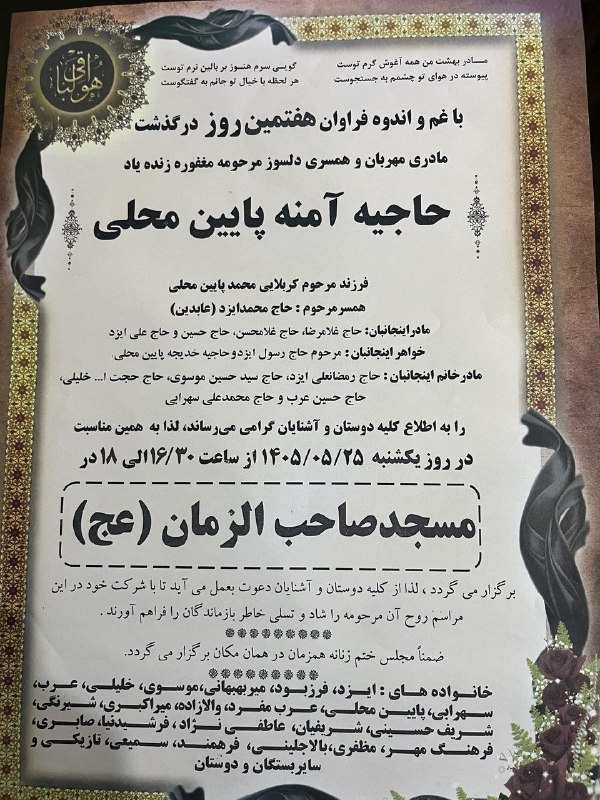 هوالباقی
مادر بهشت من همه آغوش گرم توست
گویی سرم هنوز بر بالین نرم توست
پیوسته در هوای تو چشمم به جستجوست
هر لحظه با خیال تو جانم به گفتگوست
با غم و اندوه فراوان هفتمین روز درگذشت
مادری مهربان و همسری دلسوز مرحومه مغفوره زنده یاد
حاجیه آمنه پایین محلی
فرزند مرحوم کربلایی محمد پایین محلی
همسر مرحوم : حاج محمد ایزد (عابدین)
مادر اینجانبان: حاج غلامرضا، حاج غلامحسن، حاج حسین و حاج علی ایزد
خواهر اینجانبان : مرحوم حاج رسول ایزد و حاجیه خدیجه پایین محلی
مادرخانم اینجانبان : حاج رمضانعلی ایزد، حاج سید حسین موسوی، حاج حجت ا... خلیلی،
حاج حسین عرب و حاج محمدعلی سهرابی
را به اطلاع کلیه دوستان و آشنایان گرامی می‌رساند، لذا به همین مناسبت
در روز یکشنبه ۱۴۰۵/۰۵/۲۵ از ساعت ۱۶/۳۰ الی ۱۸ در
مسجد صاحب الزمان (عج)
برگزار می گردد ، لذا از کلیه دوستان و آشنایان دعوت بعمل می آید تا با شرکت خود در این
مراسم روح آن مرحومه را شاد و تسلی خاطر بازماندگان را فراهم آورند .
ضمناً مجلس ختم زنانه همزمان در همان مکان برگزار می گردد.
خانواده های : ایزد، فرزبود، میربهبهانی، موسوی، خلیلی، عرب،
سهرابی، پایین محلی، عرب مفرد، والازاده، میراکبری، شیرنگی،
شریف حسینی، شریفیان، عاطفی نژاد، فرشیدنیا، صابری،
فرهنگ مهر، مظفری، بالاجلینی، فرهمند، سمیعی، نازیکی و
سایر بستگان و دوستان